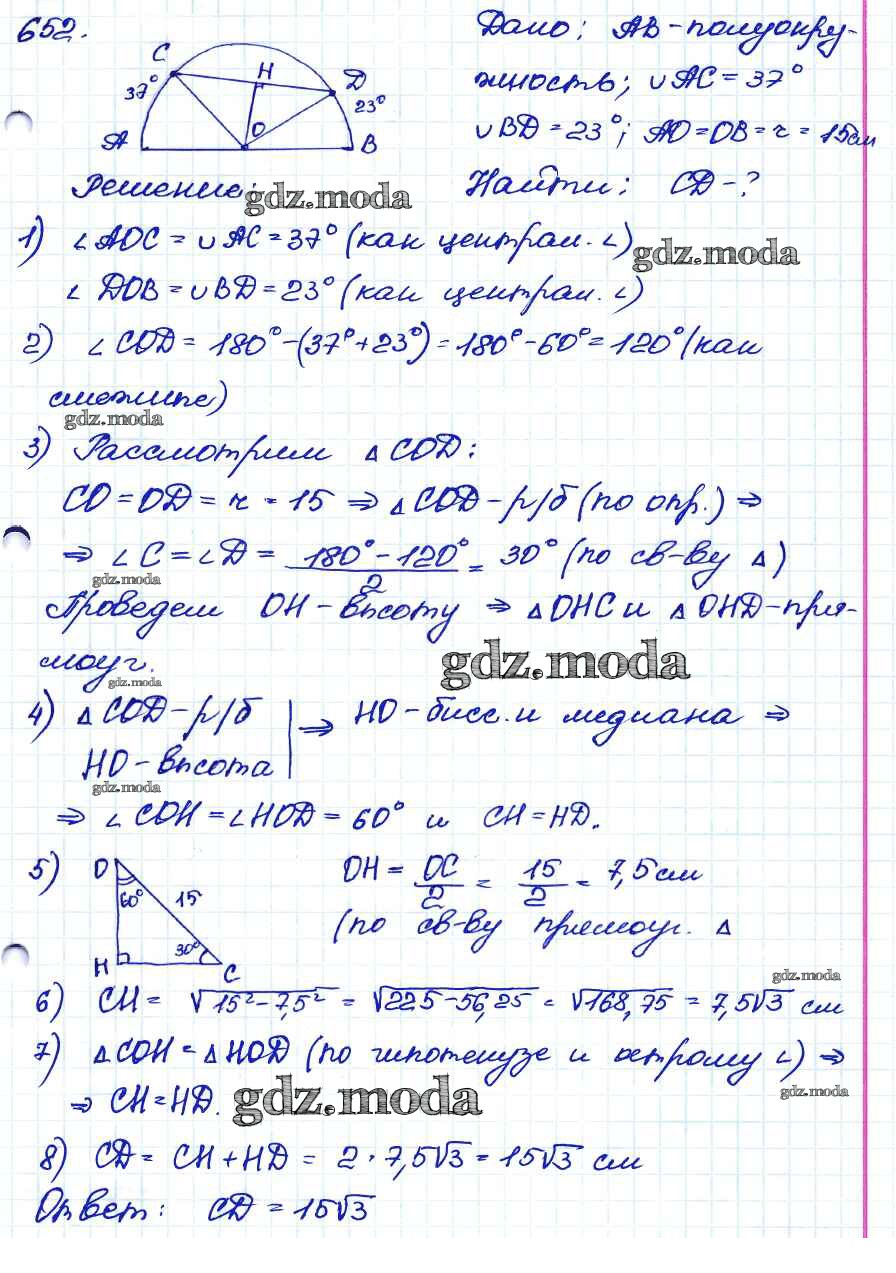 652.
Дано: AB-полуокру-
жность; ∪AC = 37°
∪BD = 23°; AO=OB=r = 15см
C
H
D
37°
23°
A
O
B
Решение:
Найти: CD-?
gdz.moda
1) ∠AOC = ∪AC = 37° (как централ. ∠)
gdz.moda
∠DOB = ∪BD = 23° (как централ. ∠)
2) ∠COD = 180° - (37° + 23°) = 180° - 60° = 120° (как
смежные)
gdz.moda
3) Рассмотрим △COD:
CO = OD = r = 15 ⇒ △COD - р/б (по опр.) ⇒
⇒ ∠C = ∠D = (180° - 120°)/2 = 30° (по св-ву △)
gdz.moda
Проведем OH - высоту ⇒ △OHC и △OHD - пря-
моуг.
gdz.moda
gdz.moda
4) △COD - р/б | ⇒ HO - бисс. и медиана ⇒
HO - высота
gdz.moda
⇒ ∠COH = ∠HOD = 60° и CH = HD.
5) O 60° 15 30° H C
OH = OC/2 = 15/2 = 7,5 см
(по св-ву прямоуг. △
gdz.moda
6) CH = √15²-7,5² = √225-56,25 = √168,75 = 7,5√3 см
7) △COH = △HOD (по гипотенузе и острому ∠) ⇒
gdz.moda
⇒ CH = HD.
gdz.moda
8) CD = CH + HD = 2 · 7,5√3 = 15√3 см
Ответ: CD = 15√3